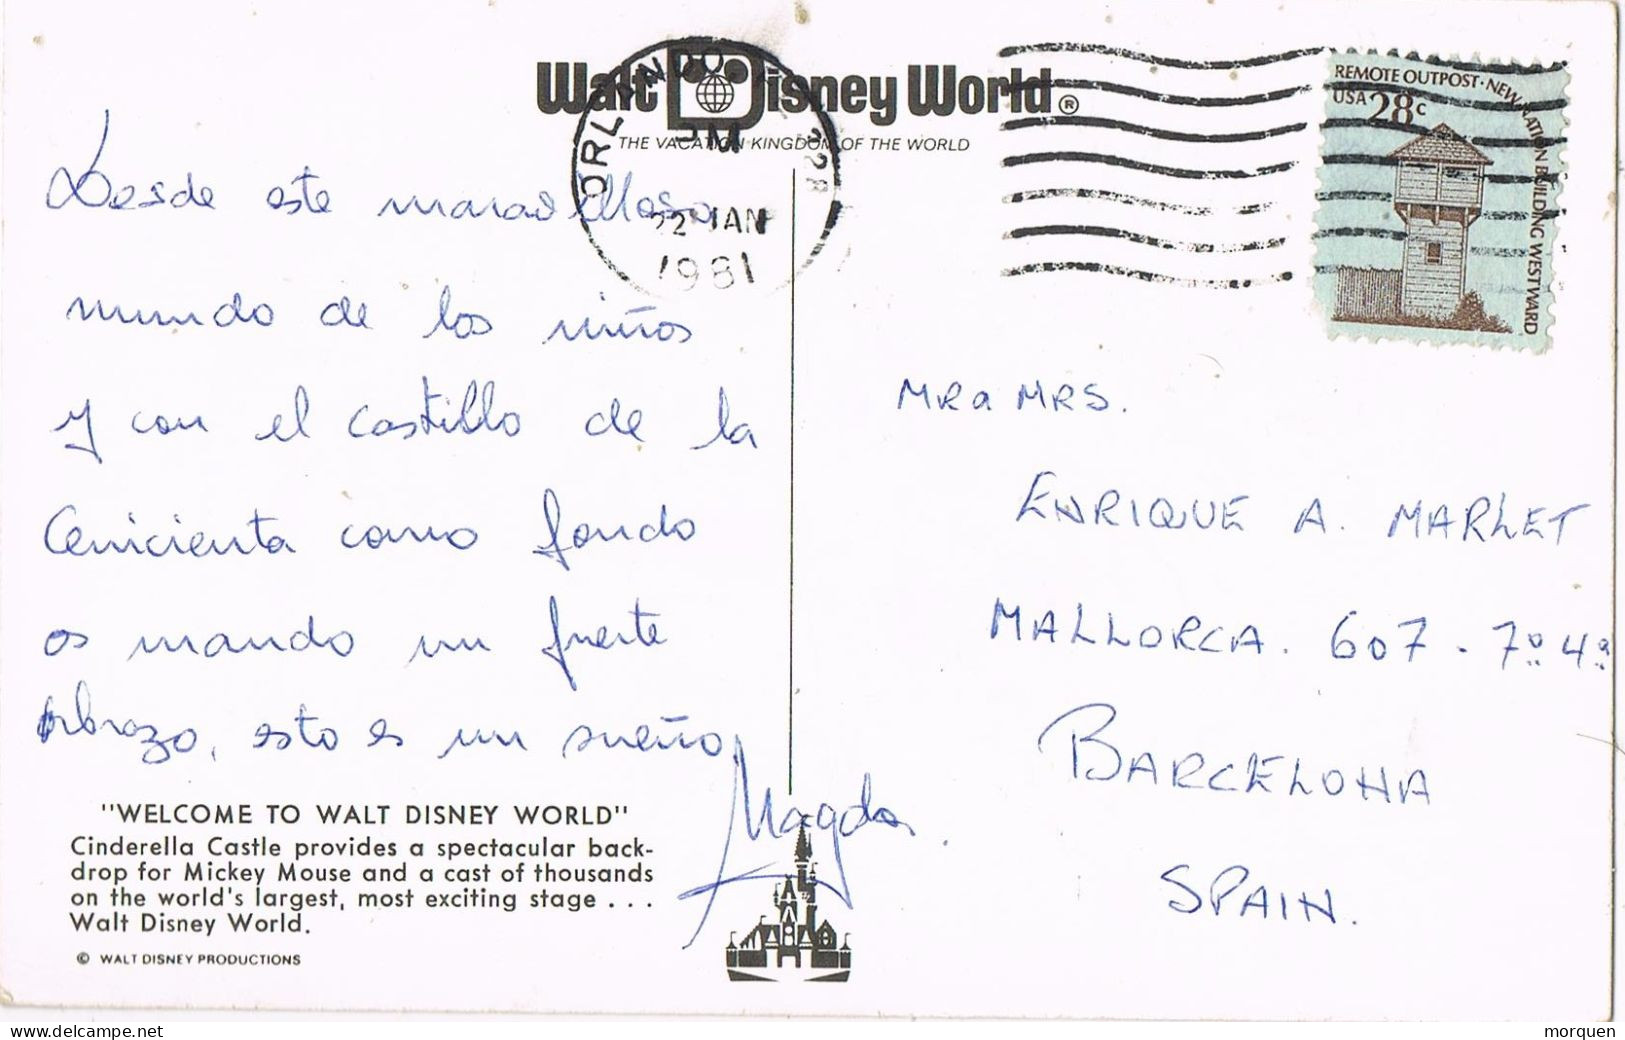 Walt Disney World®
THE VACATION KINGDOM OF THE WORLD
ORLANDO
PM
22 JAN
1981
328
REMOTE OUTPOST·NEW NATION BUILDING WESTWARD
USA 28c
Desde este maravilloso
mundo de los niños
y con el castillo de la
Cenicienta como fondo
os mando un fuerte
abrazo, esto es un sueño.
Magda.
MR a MRS.
ENRIQUE A. MARLET
MALLORCA. 607 - 7º 4ª
BARCELONA
SPAIN.
"WELCOME TO WALT DISNEY WORLD"
Cinderella Castle provides a spectacular back-
drop for Mickey Mouse and a cast of thousands
on the world's largest, most exciting stage . . .
Walt Disney World.
© WALT DISNEY PRODUCTIONS
www.delcampe.net
morquen